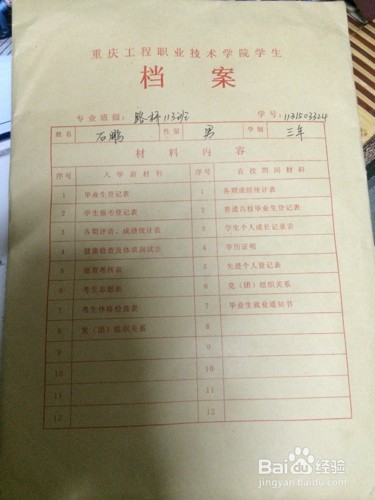 重庆工程职业技术学院学生
档 案
专业班级: 路桥113班 学号: 1131503324
姓名 石鹏 性别 男 学制 三年
材 料 内 容
序号 入学前材料 序号 在校期间材料
1 毕业生登记表 1 各期成绩统计表
2 学生报考登记表 2 普通高校毕业生登记表
3 各期评语、成绩统计表 3 学生个人成长记录表
4 健康检查及体质测试表 4 学历证明
5 德育考核表 5 先进个人登记表
6 考生志愿表 6 党(团)组织关系
7 考生体格检查表 7 毕业生就业通知书
8 党(团)组织关系 8
9 9
10 10
11 11
12 12
Baidu 经验
jingyan.baidu.com